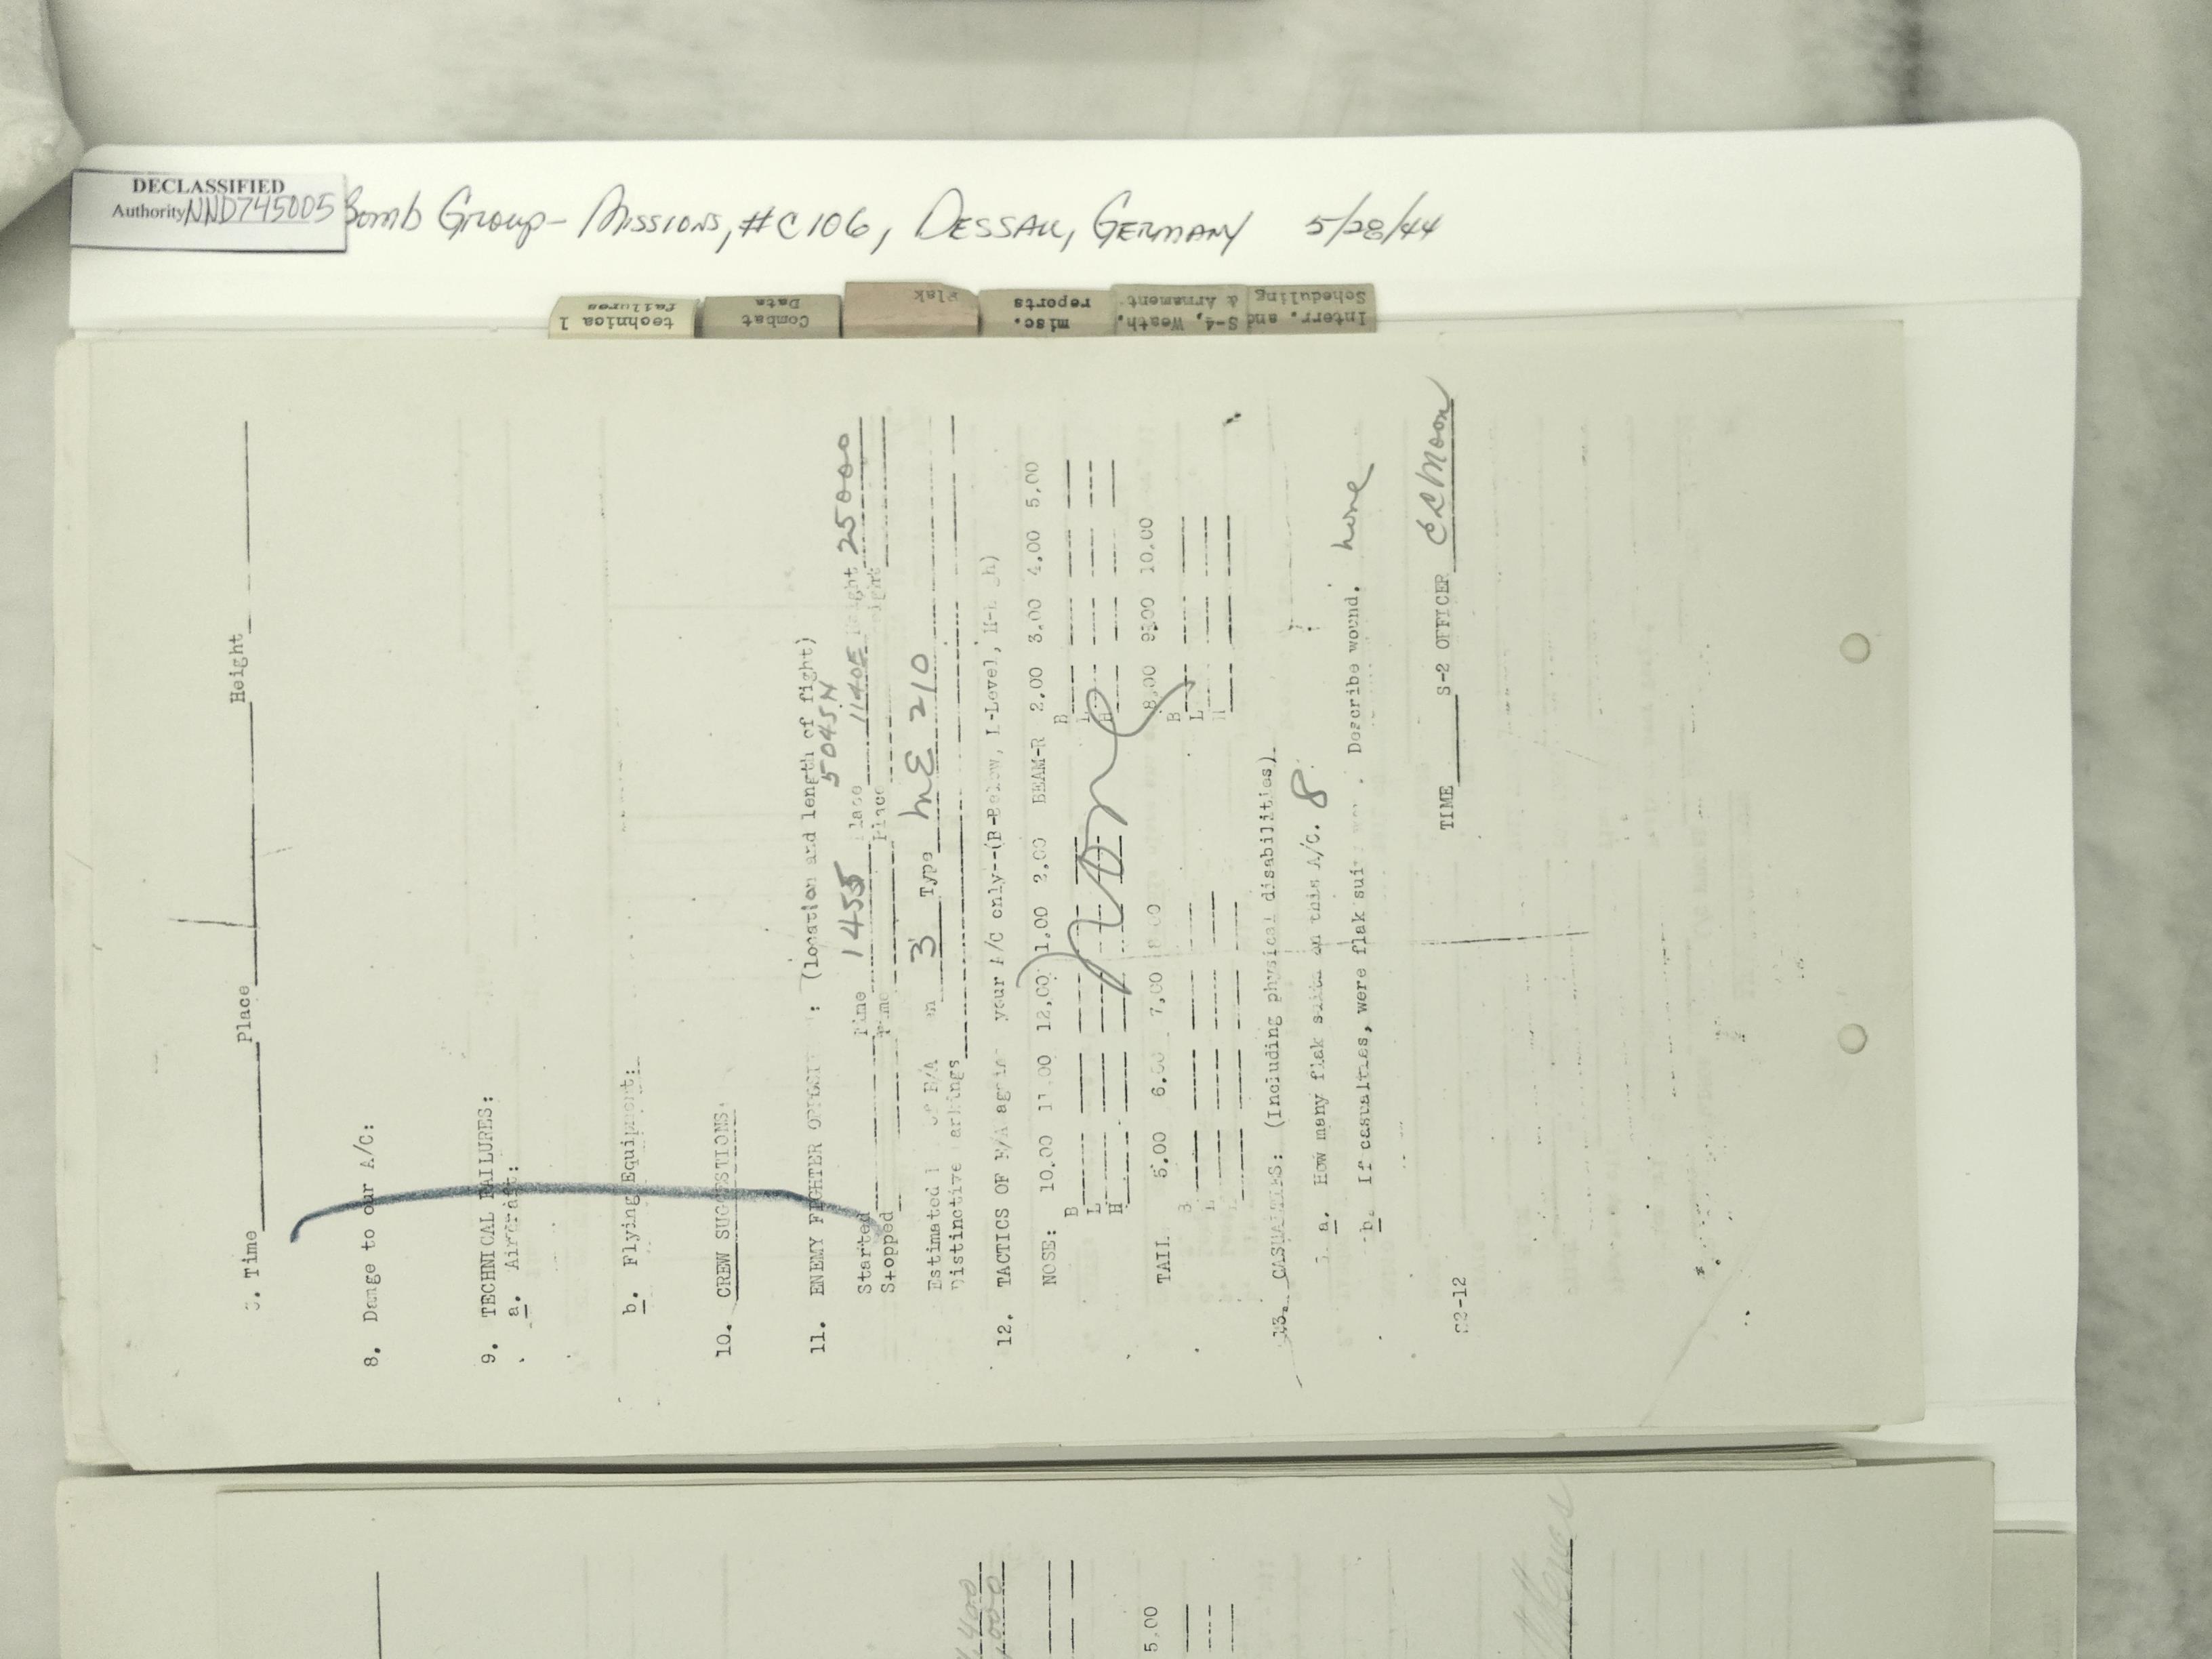 DECLASSIFIED
Authority NND745005
Bomb Group - Missions, #C106, Dessau, Germany 5/28/44
technical failures
Combat Data
Flak
misc. reports
S-4, Weath. & Armament
Interr. and Scheduling
Time Place Height
8. Damage to our A/C:
9. TECHNICAL FAILURES:
a. Aircraft:
b. Flying Equipment:
10. CREW SUGGESTIONS:
11. ENEMY FIGHTER : (location and length of fight)
5045N
Started Time 1455 1140E 25000
Stopped Time Place
Estimated E/A 3 Type ME 210
Distinctive
12. TACTICS OF E/A your A/C only--(B-Below, L-Level,
NOSE: 10.00 11.00 12.00 1.00 2.00 BEAM-R 2.00 3.00 4.00 5.00
B B
L
H
none
TAIL 5.00 6.00 7.00 8.00 9.00 10.00
B
L
13. CASUALTIES: (Including physical disabilities).
a. How many flak suits on this A/C. 8
b. If casualties, were flak Describe wound. none
TIME S-2 OFFICER CCMoon
S2-12
5.00